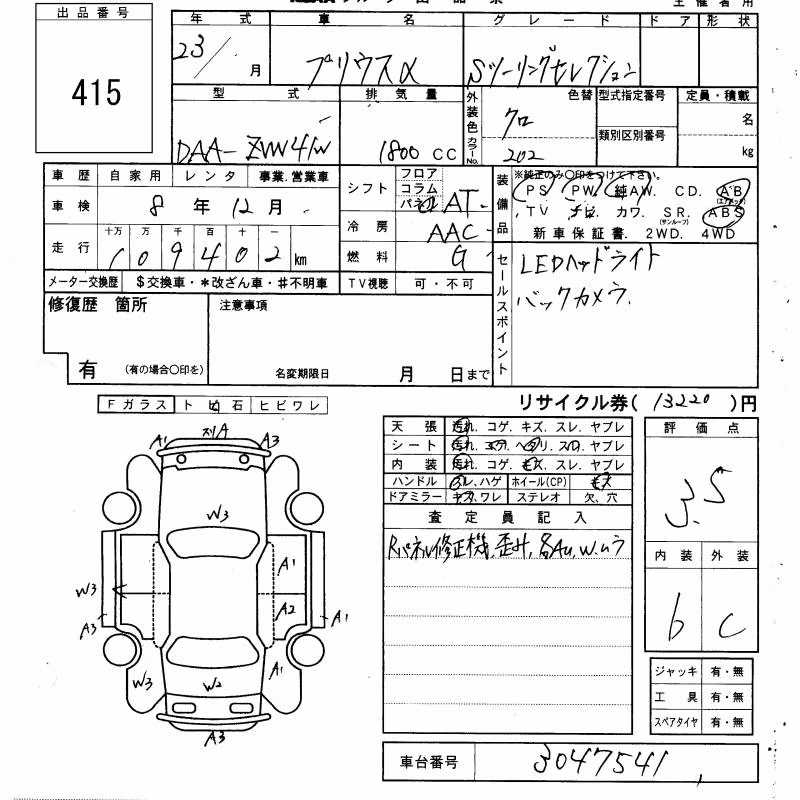 出品番号
415
年 式 車 名 グレード ドア 形状
23/ 月 プリウスα Sツーリングセレクション
型 式 排気量 外装色 カラーNo. 色替 型式指定番号 定員・積載
DAA-ZVW41W 1800 CC クロ 202 類別区別番号 名 kg
車歴 自家用 レンタ 事業.営業車
車検 8 年 12 月
走行 十万 万 千 百 十 一
109402 km
メーター交換歴 $交換車・*改ざん車・#不明車
シフト フロア コラム パネル AT
冷房 AAC
燃料 G
TV視聴 可・不可
装備品 ※純正のみ〇印をつけて下さい。
PS PW 純AW. CD. AB (エアバック)
TV ナビ カワ. SR. (サンルーフ) ABS
新車保証書. 2WD. 4WD
セールスポイント
LEDヘッドライト
バックカメラ.
修復歴 箇所
有 (有の場合〇印を)
注意事項
名変期限日 月 日まで
リサイクル券( 13220 )円
Fガラス トビ石 ヒビワレ
A1 スリA A3
W3
A1
W3 A2
A3 A1
W3 W2 A1
A3
天張 汚れ. コゲ. キズ. スレ. ヤブレ
シート 汚れ. コゲ. ヘタリ. スレ. ヤブレ
内装 汚れ. コゲ. キズ. スレ. ヤブレ
ハンドル スレ.ハゲ ホイール(CP) キズ
ドアミラー キズ.ワレ ステレオ 欠、穴
査定員記入
Rパネル修正機.歪み.各AU.W.ムラ
評価点
3.5
内装 外装
b C
ジャッキ 有・無
工具 有・無
スペアタイヤ 有・無
車台番号 3047541